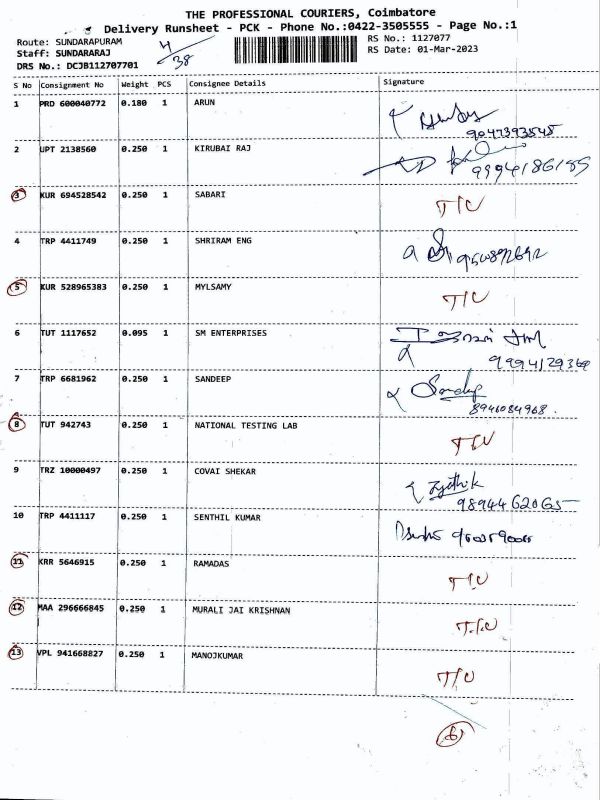 THE PROFESSIONAL COURIERS, Coimbatore
Delivery Runsheet - PCK - Phone No.:0422-3505555 - Page No.:1
Route: SUNDARAPURAM
Staff: SUNDARARAJ
DRS No.: DCJB112707701
4/38
RS No.: 1127077
RS Date: 01-Mar-2023
S No Consignment No Weight PCS Consignee Details Signature
1 PRD 600040772 0.180 1 ARUN
9047393545
2 UPT 2138560 0.250 1 KIRUBAI RAJ
9994186185
3 KUR 694528542 0.250 1 SABARI T/C
4 TRP 4411749 0.250 1 SHRIRAM ENG
5 KUR 528965383 0.250 1 MYLSAMY T/C
6 TUT 1117652 0.095 1 SM ENTERPRISES
9994129360
7 TRP 6681962 0.250 1 SANDEEP Sandep
8946084968.
8 TUT 942743 0.250 1 NATIONAL TESTING LAB T/C
9 TRZ 10000497 0.250 1 COVAI SHEKAR
9894462065
10 TRP 4411117 0.250 1 SENTHIL KUMAR
11 KRR 5646915 0.250 1 RAMADAS T/C
12 MAA 296666845 0.250 1 MURALI JAI KRISHNAN T/C
13 VPL 941668827 0.250 1 MANOJKUMAR T/C
6